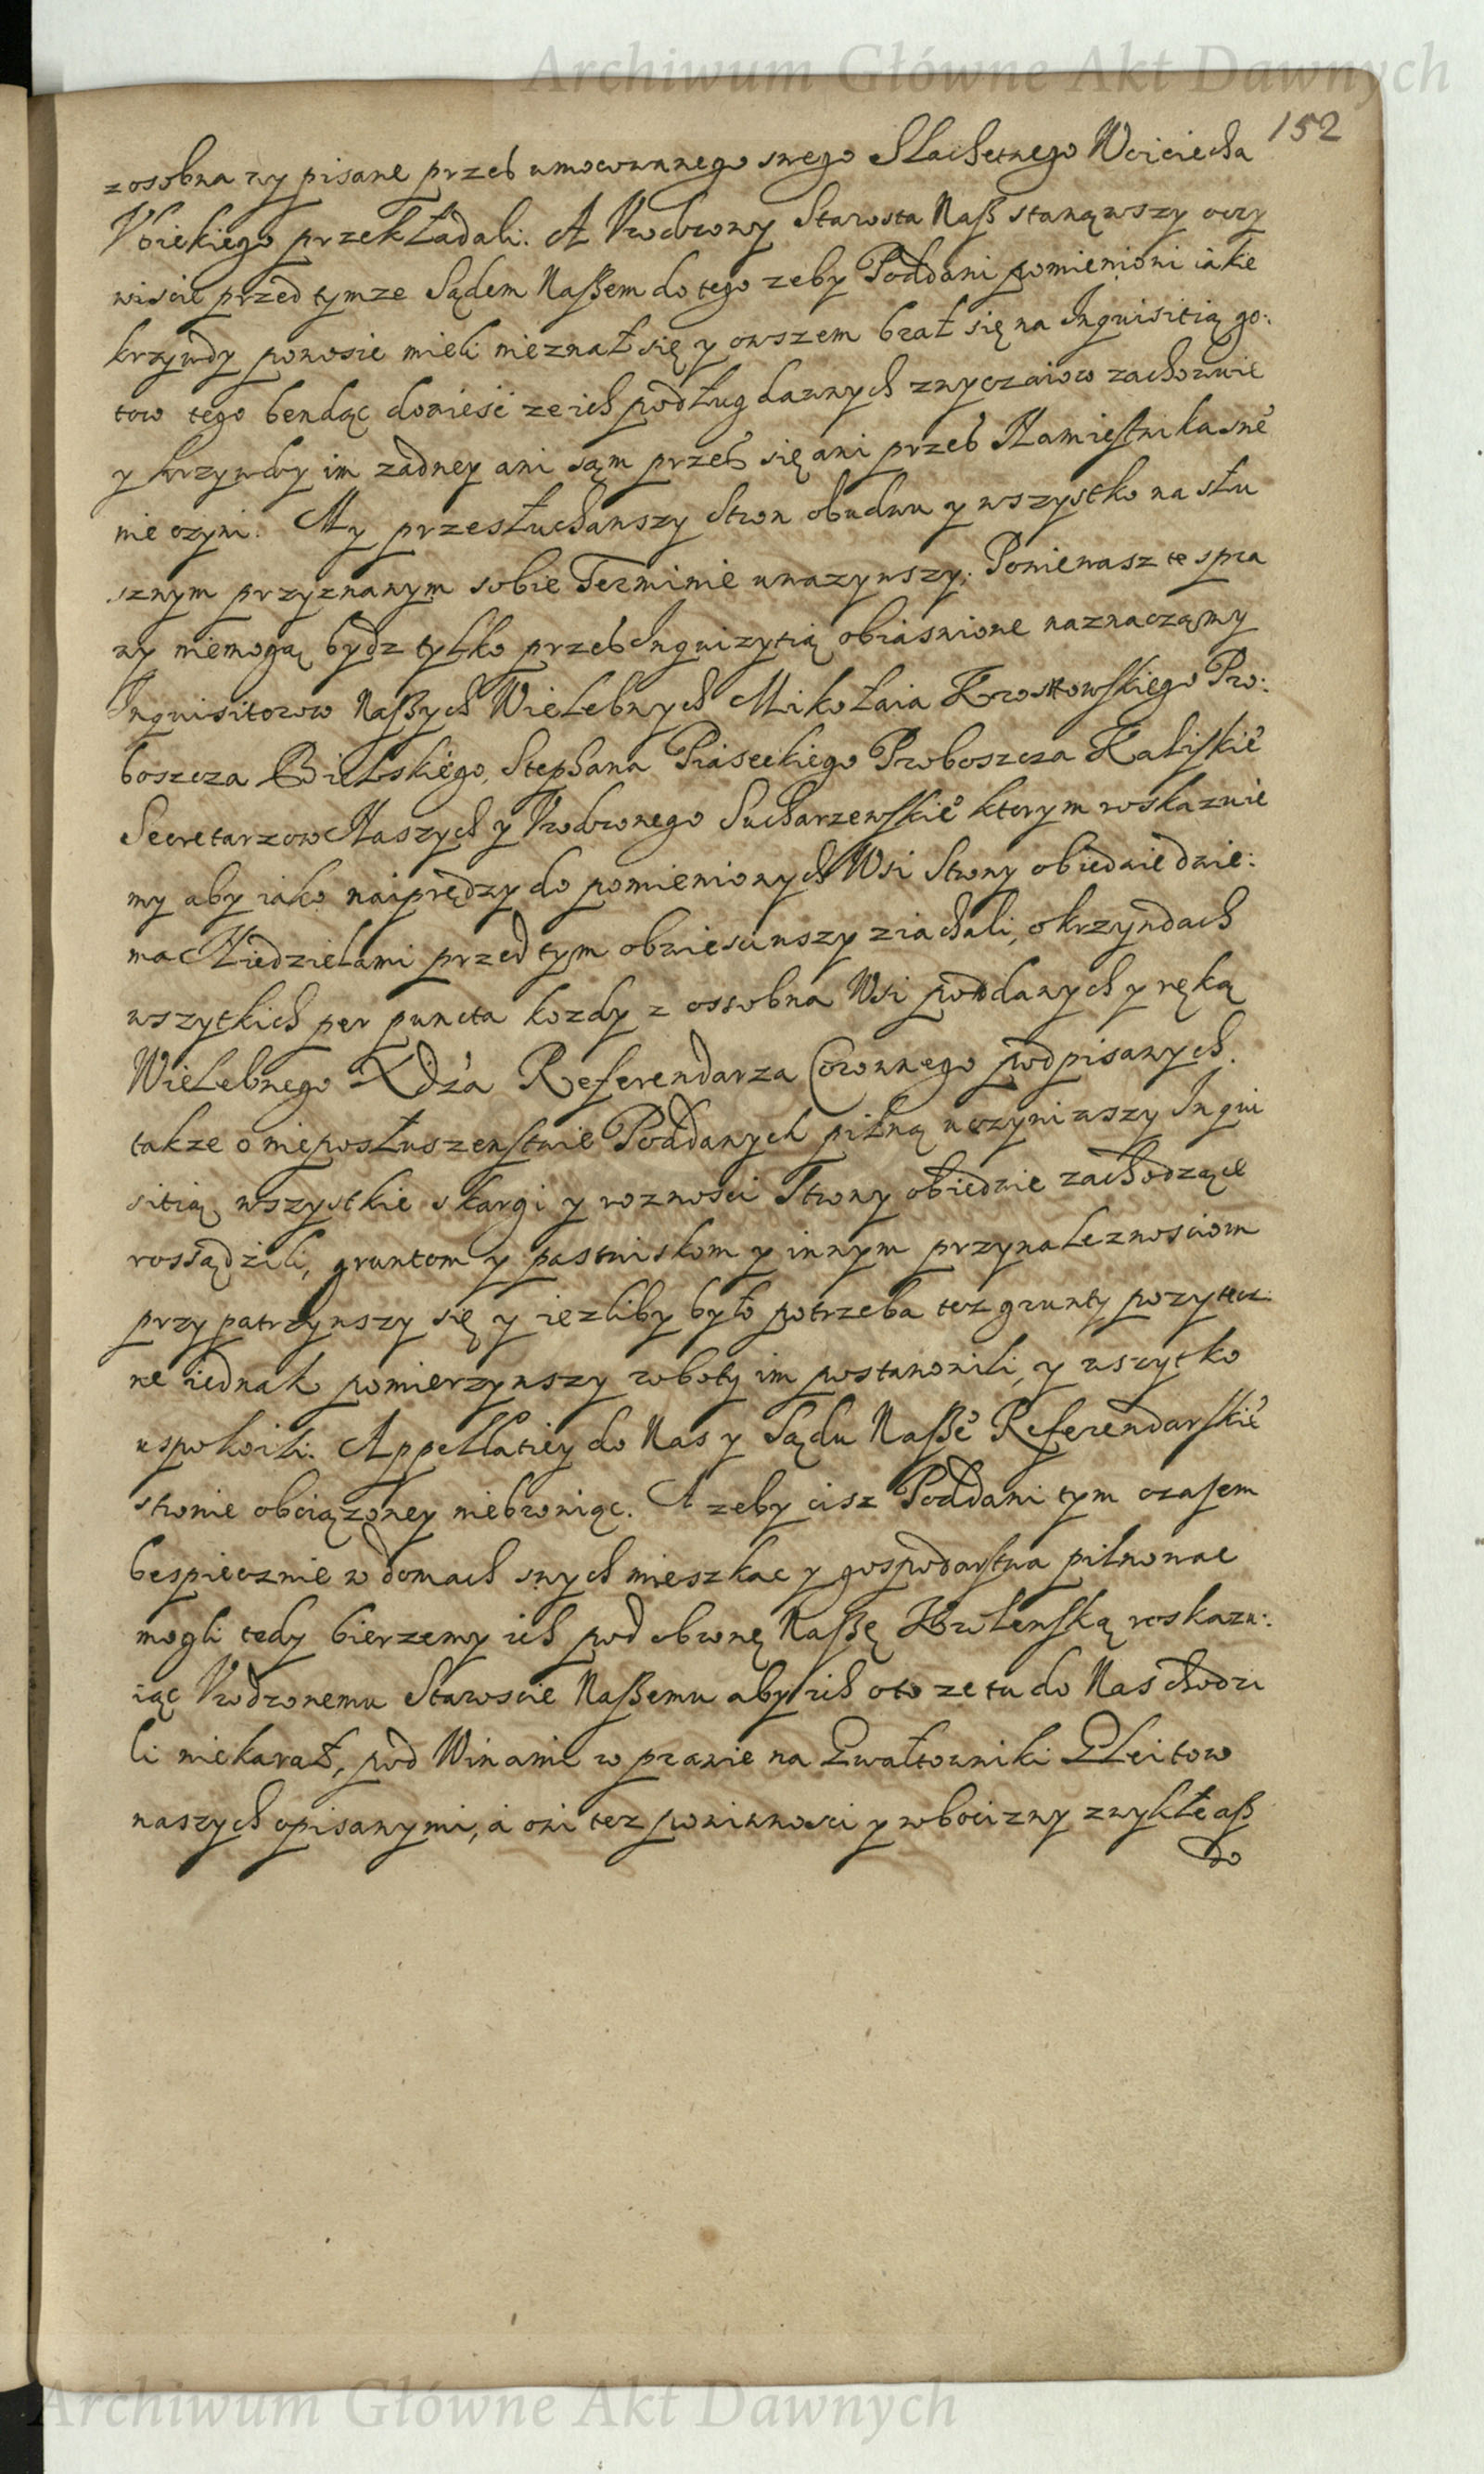 Archiwum Główne Akt Dawnych
152
z osobna wypisane przes umocowanego swego Slachetnego Woiciecha
przekładali. A Vrodzony Starosta Naß stanąwszy oczy
wiscie przed tymze Sądem Naßem do tego zeby Poddani pomienioni iakie
krzywdy ponosic mieli nieznał się y owszem brał się na Inquisitią go:
tow tego bendąc dowiesć ze ich podług dawnych zwyczaiow zachowuie
y krzywdy im zadney ani sąm przes się ani przes Namiestnika swe
nie czyni. My przesłuchawszy stron obudwu y wszystko na słu
sznym przyznanym sobie Terminie uwazywszy. Poniewasz te spra
wy niemogą bydz tylko przes Inquizytią obiasnione naznaczamy
Inquisitorow Naßych Wielebnych Mikołaia Krosnowskiego Pro:
boszcza Bielskiego, Stephana Piaseckiego Proboszcza Kaliskie
Secretarzow Naszych y Vrodzonego Sucharzewskie ktorym roskazuie
my aby iako naiprędzy do pomienionych Wsi Strony obiedwie dwie:
ma Niedzielami przed tym obwiesciwszy ziachali, o krzywdach
wszytkich per puncta kozdy z ossobna Wsi poddanych y ręką
Wielebnego Xdza Referendarza Coronnego podpisanych.
takze o nieposłuszenstwie Poddanych pilną uczyniwszy Inqui
sitią wszystkie skargi y roznosci Strony obiedwie zachodzące
rossądzili, gruntom y pastwiskom y innym przynaleznosciom
przypatrzywszy się y iezliby było potrzeba tez grunty pozytecz:
ne iednak pomierzywszy roboty im postanowili, y wszytko
uspokoili. Appellatiey do Nas y Sądu Naße Referendarskie
stronie obciązoney niebroniąc. A zeby cisz Poddani tym czasem
bespiecznie w domach swych mieszkac y gospodarstwa pilnowac
mogli tedy bierzemy ich pod obronę Naßę Krolewską roskazu:
iąc Vrodzonemu Staroscie Naßemu aby ich oto ze tu do Nas chodzi
li niekarał, pod Winami w prawie na Gwałtowniki Gleitow
naszych opisanymi, a oni tez powinnosci y robocizny zwykłe aß
do
Archiwum Główne Akt Dawnych